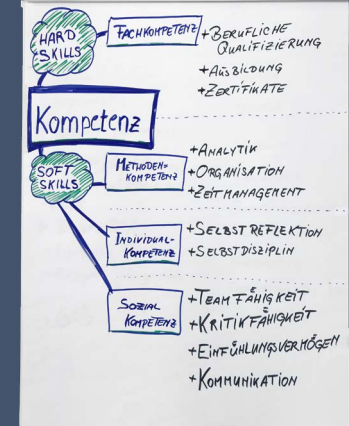 HARD
SKILLS
FACHKOMPETENZ
+ BERUFLICHE
QUALIFIZIERUNG
+ AUSBILDUNG
+ ZERTIFIKATE
Kompetenz
SOFT
SKILLS
METHODEN-
KOMPETENZ
+ ANALYTIK
+ ORGANISATION
+ ZEITMANAGEMENT
INDIVIDUAL-
KOMPETENZ
+ SELBSTREFLEKTION
+ SELBSTDISZIPLIN
SOZIAL
KOMPETENZ
+ TEAMFÄHIGKEIT
+ KRITIKFÄHIGKEIT
+ EINFÜHLUNGSVERMÖGEN
+ KOMMUNIKATION